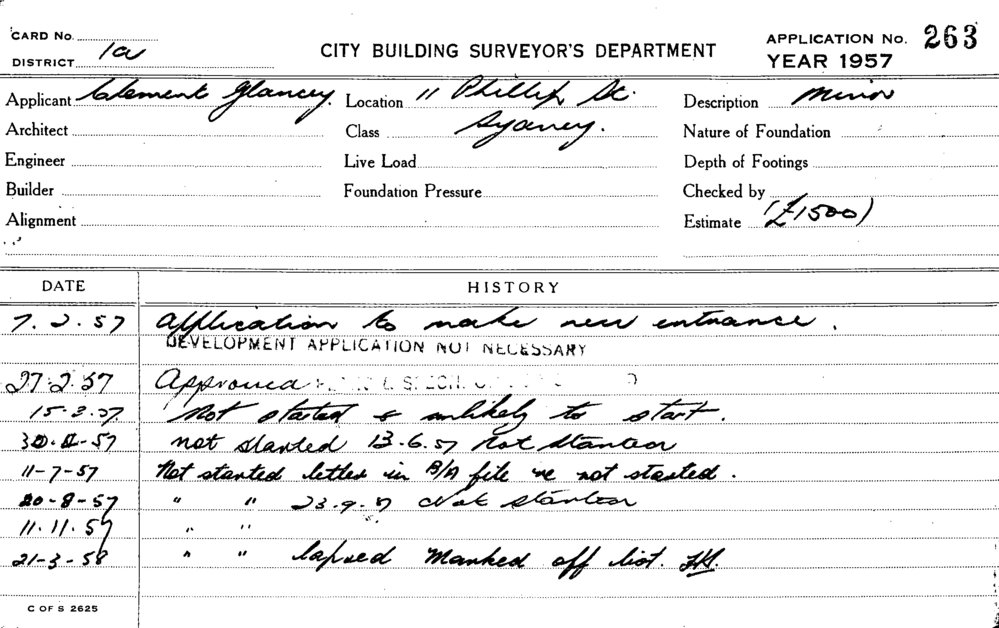 CARD No.
DISTRICT 1a
CITY BUILDING SURVEYOR'S DEPARTMENT
APPLICATION No. 263
YEAR 1957
Applicant Clement Glancey. Location 11 Phillip St. Description Minor
Architect Class Sydney. Nature of Foundation
Engineer Live Load Depth of Footings
Builder Foundation Pressure Checked by
Alignment Estimate (£1500)
DATE HISTORY
7.2.57 Application to make new entrance.
DEVELOPMENT APPLICATION NOT NECESSARY
27.2.57 Approved
15.3.57 Not started & unlikely to start.
-57 not started 13.6.57 Not started
11-7-57 Not started letter in B/A file re not started.
20-8-57 " " 23.9.57 Not started
11.11.57 " "
21-3-58 " " lapsed Marked off list.
C OF S 2625